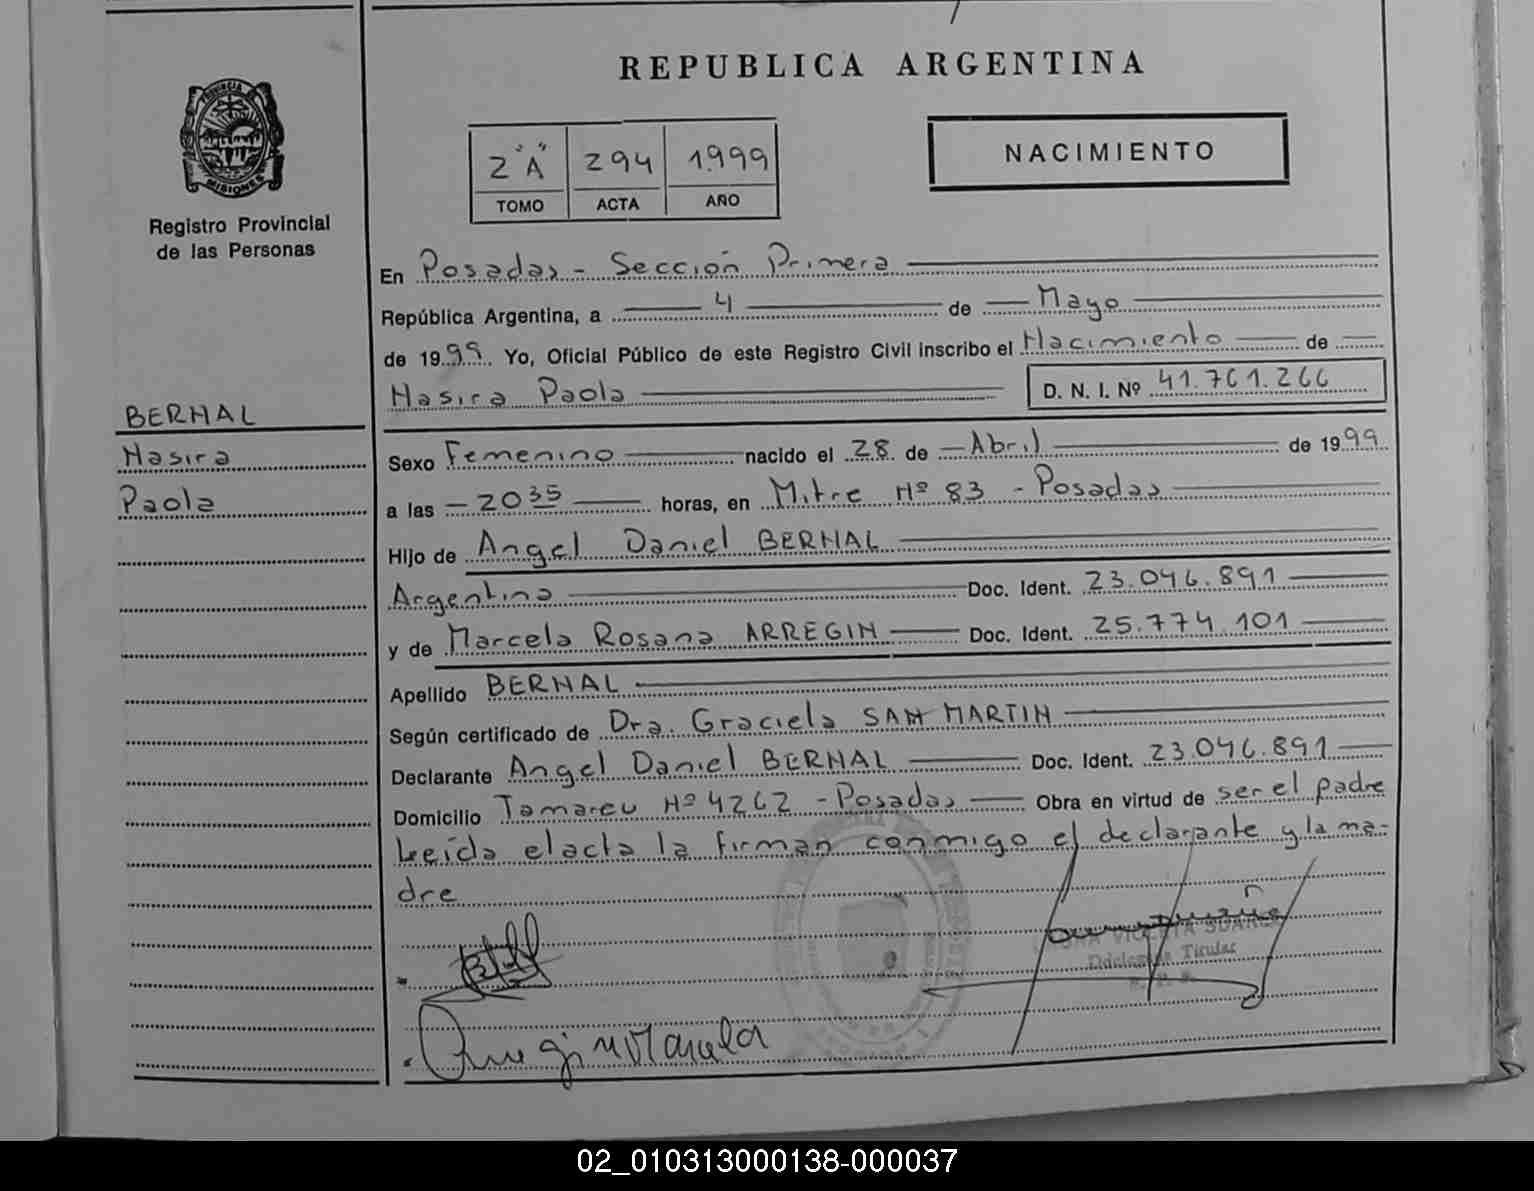 REPUBLICA ARGENTINA
PROVINCIA DE
MISIONES
Registro Provincial
de las Personas
2 "A" 294 1.999
TOMO ACTA AÑO
NACIMIENTO
BERNAL
Nasira
Paola
En Posadas - Sección Primera
República Argentina, a 4 de Mayo
de 1999. Yo, Oficial Público de este Registro Civil inscribo el Nacimiento de
Nasira Paola D. N. I. Nº 41.761.266
Sexo Femenino nacido el 28 de Abril de 1999
a las 20 35 horas, en Mitre Nº 83 - Posadas
Hijo de Angel Daniel BERNAL
Argentino Doc. Ident. 23.046.891
y de Marcela Rosana ARREGIN Doc. Ident. 25.774.101
Apellido BERNAL
Según certificado de Dra. Graciela SAN MARTIN
Declarante Angel Daniel BERNAL Doc. Ident. 23.046.891
Domicilio Tamareu Nº 4262 - Posadas Obra en virtud de ser el padre
Leída el acta la firman conmigo el declarante y la ma-
dre
Titular
Arregin Marcela
02_010313000138-000037